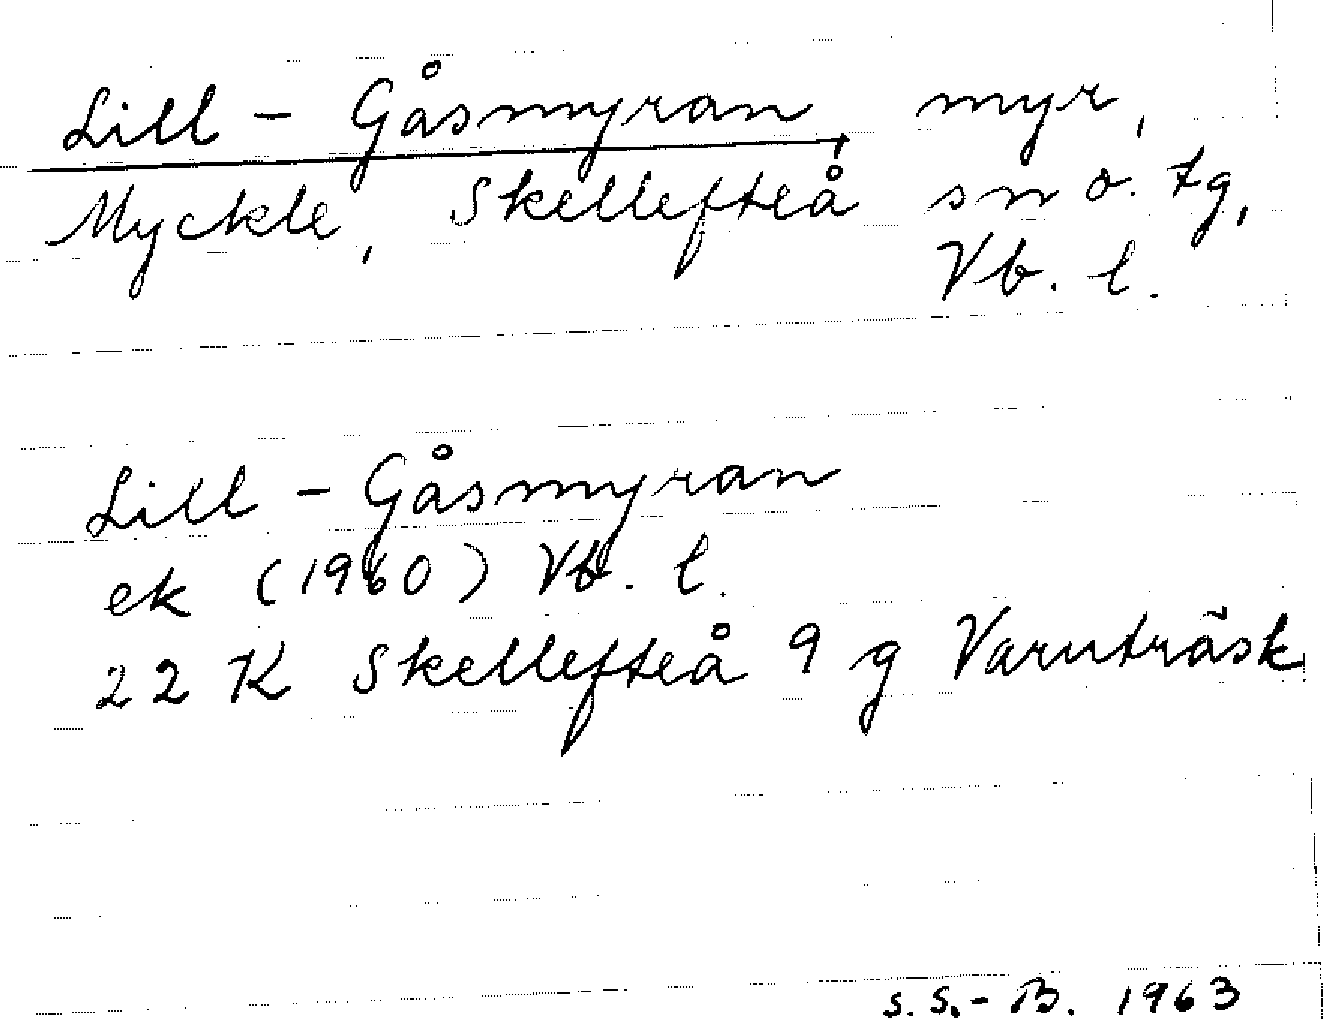 Lill - Gåsmyran, myr,
Myckle, Skellefteå sn o. tg,
Vb. l.
Lill - Gåsmyran
ek (1960) Vb. l.
22 K Skellefteå 9 g Varuträsk
S. S.- B. 1963